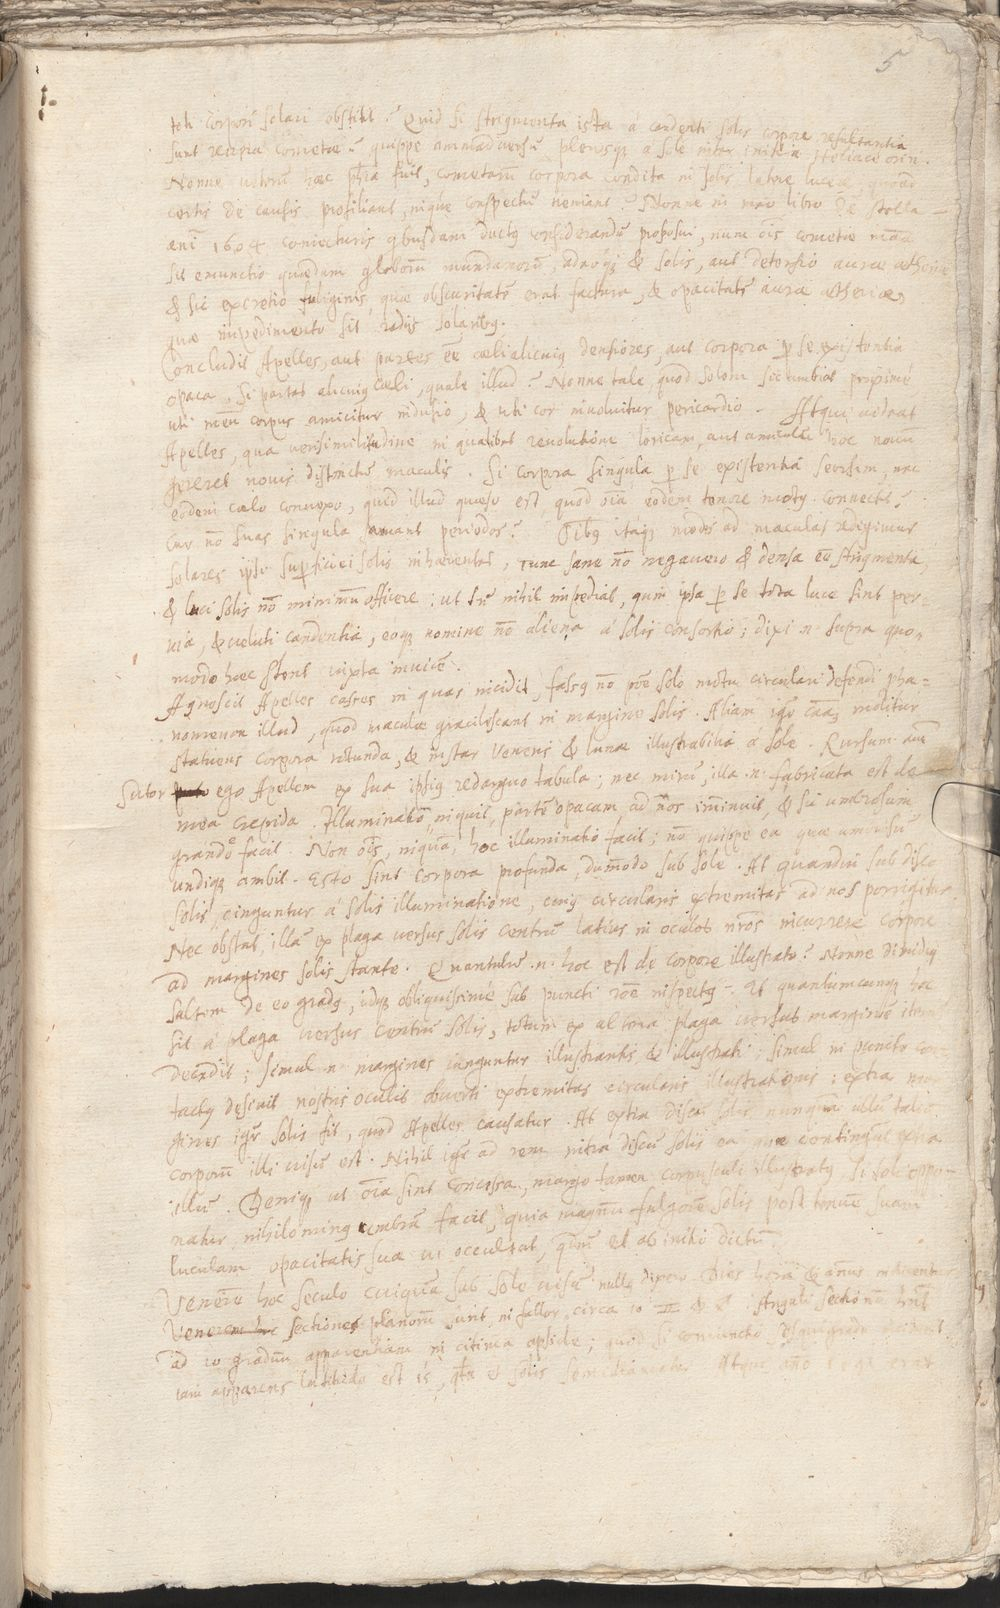 5
toti corpori solari obstitit? Quid si strigmenta ista á candenti Solis corpore resultantia
sunt recipia Cometæ? quippe animadversũ plerosq; a Sole initia Heliace orin.
Nonne veterũ hæc phia fuit, cometarũ corpora condita in solis latere luce, quoad
certis de causis prosiliant, inque conspectũ veniant? Nonne in meo libro de stella
añi 1604 coniecturis qbusdam ductq considerandũ proposui, num ois cometæ mãa
sit emunctio quædam globorũ mundanorũ, adeoq; & solis, aut detersio auræ ætheriæ
& sic excretio fuliginis, quæ obscuritatẽ erat factura, & opacitatẽ auræ æthereæ,
quæ impedimento sit radiis solaribq.
Concludit Apelles, aut partes eẽ cæli alicuiq densiores, aut corpora p se existentia
opaca. Si partes alicuiq Cæli, quale illud? Nonne tale, quod Solem sic ambiat proximè
uti meũ corpus amicitur indusio, & uti cor involvitur pericardio. Atqui videat
Apelles, qua verisimilitudine in qualibet revolutione loricam aut amiculũ hoc novũ
gereret novis distinctũ maculis. Si corpora singula p se existentia seorsim, nec
eodem cælo connexo, quid illud quæso est, quod oia eodem tenore motq connectit?
Cur nõ suas singula servant periodos? Oibq itaq; modis ad maculas redigimur
solares ipsi superficiei solis inhærentes, tunc sane nõ negavero & densa eẽ strigmenta,
& luci solis nõ minimũ officere; ut tñ nihil impediat, quin ipsa p se tota luce sint per-
via, & veluti candentia, eoq; nomine nõ aliena á solis consortio; dixi .n. supra quo-
modo hæc stent iuxta invicẽ.
Agnoscit Apelles casses in quas incidit, fassq nõ põe solo motu circulari defendi phæ=
nomenon illud, quod maculæ gracilescant in margine solis. Aliam igr cãã; molitur
statuens corpora rotunda, & instar Veneris & lunæ illustrabilia á sole. Rursum aũt
Sutor ego Apellem ex sua ipsiq redarguo tabula; nec mirũ, illa .n. fabricata est de
mea crepida. Illuminatio, inquit, partẽ opacam ad ños iminuit, & sic umbrosum
grande facit. Non ois, inquã, hoc illuminatio facit; nõ quippe ea quæ umbrosũ
undiq; ambit. Esto sint corpora profunda, dummodo sub sole. At quandiu sub disco
Solis, cinguntur á solis illuminatione, cuiq circularis extremitas ad nos porrigitur.
Nec obstat, illã ex plaga versus solis centrũ latius in oculos nros incurrere corpore
ad margines solis stante. Quantulũ .n. hoc est de corpore illustrato? Nonne dimidiq
saltem de eo gradq, idq; obliquissimè sub puncti rõe inspectq. Et quantumcunq; hoc
sit á plaga versus centrũ solis, totum ex altera plaga versus marginẽ iterũ
decedit; simul .n. margines iunguntur illustrantis & illustrati; simul in puncto con-
tactq desinit nostris oculis obverti extremitas circularis illustrationis; extra mar-
gines igr solis fit, quod Apelles causatur. At extra discũ solis nunquã ullũ taliũ
corporũ illi visũ est. Nihil igr ad rem intra discũ solis ea quæ contingunt extra
illũ. Deniq; ut oia sint concessa, margo tamen corpusculi illustratq, si soli oppo-
natur, nihilominq umbrã facit, quia magnũ fulgorẽ solis post tenuẽ suam
luculam opacitatis suæ vi occultat, qũm et ab initio dictũ.
Venerẽ hoc seculo cuiquã sub sole visũ nullq dixero. Dies hora & annus
sectiones planorũ sunt, ni fallor, circa 10 II & ♐. Anguli sectionũ hñt
ad 10 gradũ apparentiam in citima apside; quod si coniunctio
iam apparens latitudo est is, qta et solis semidiameter. Atqui año